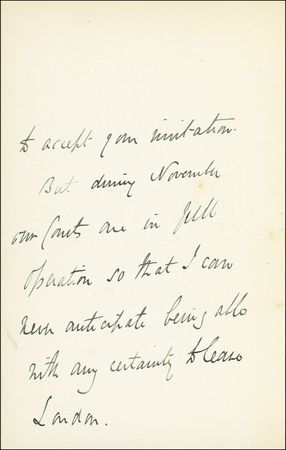 to accept your invitation.
But during November
our Courts are in full
operation so that I can
never anticipate being able
with any certainty to leave
London.